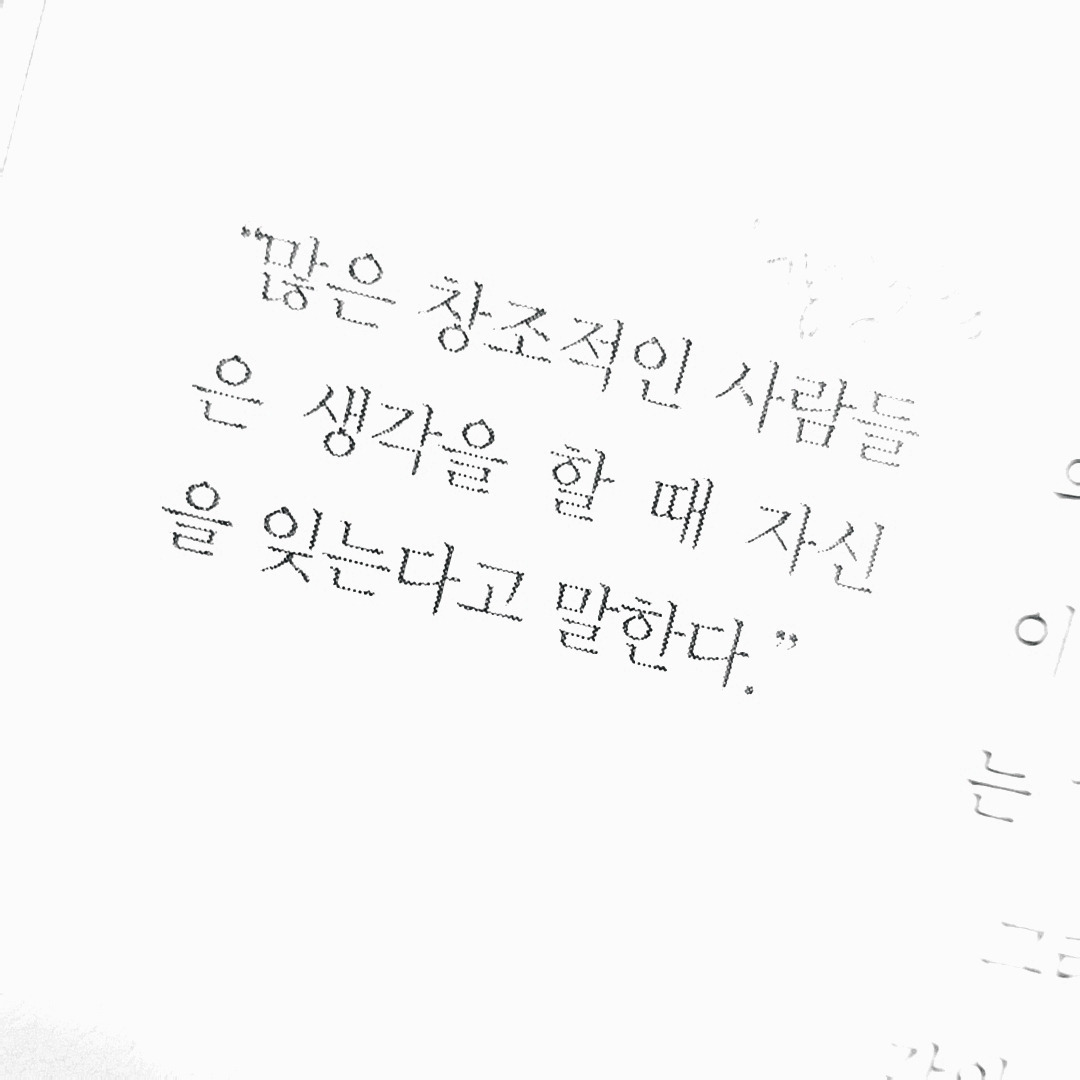 “많은 창조적인 사람들
은 생각을 할 때 자신
을 잊는다고 말한다.”
이
는